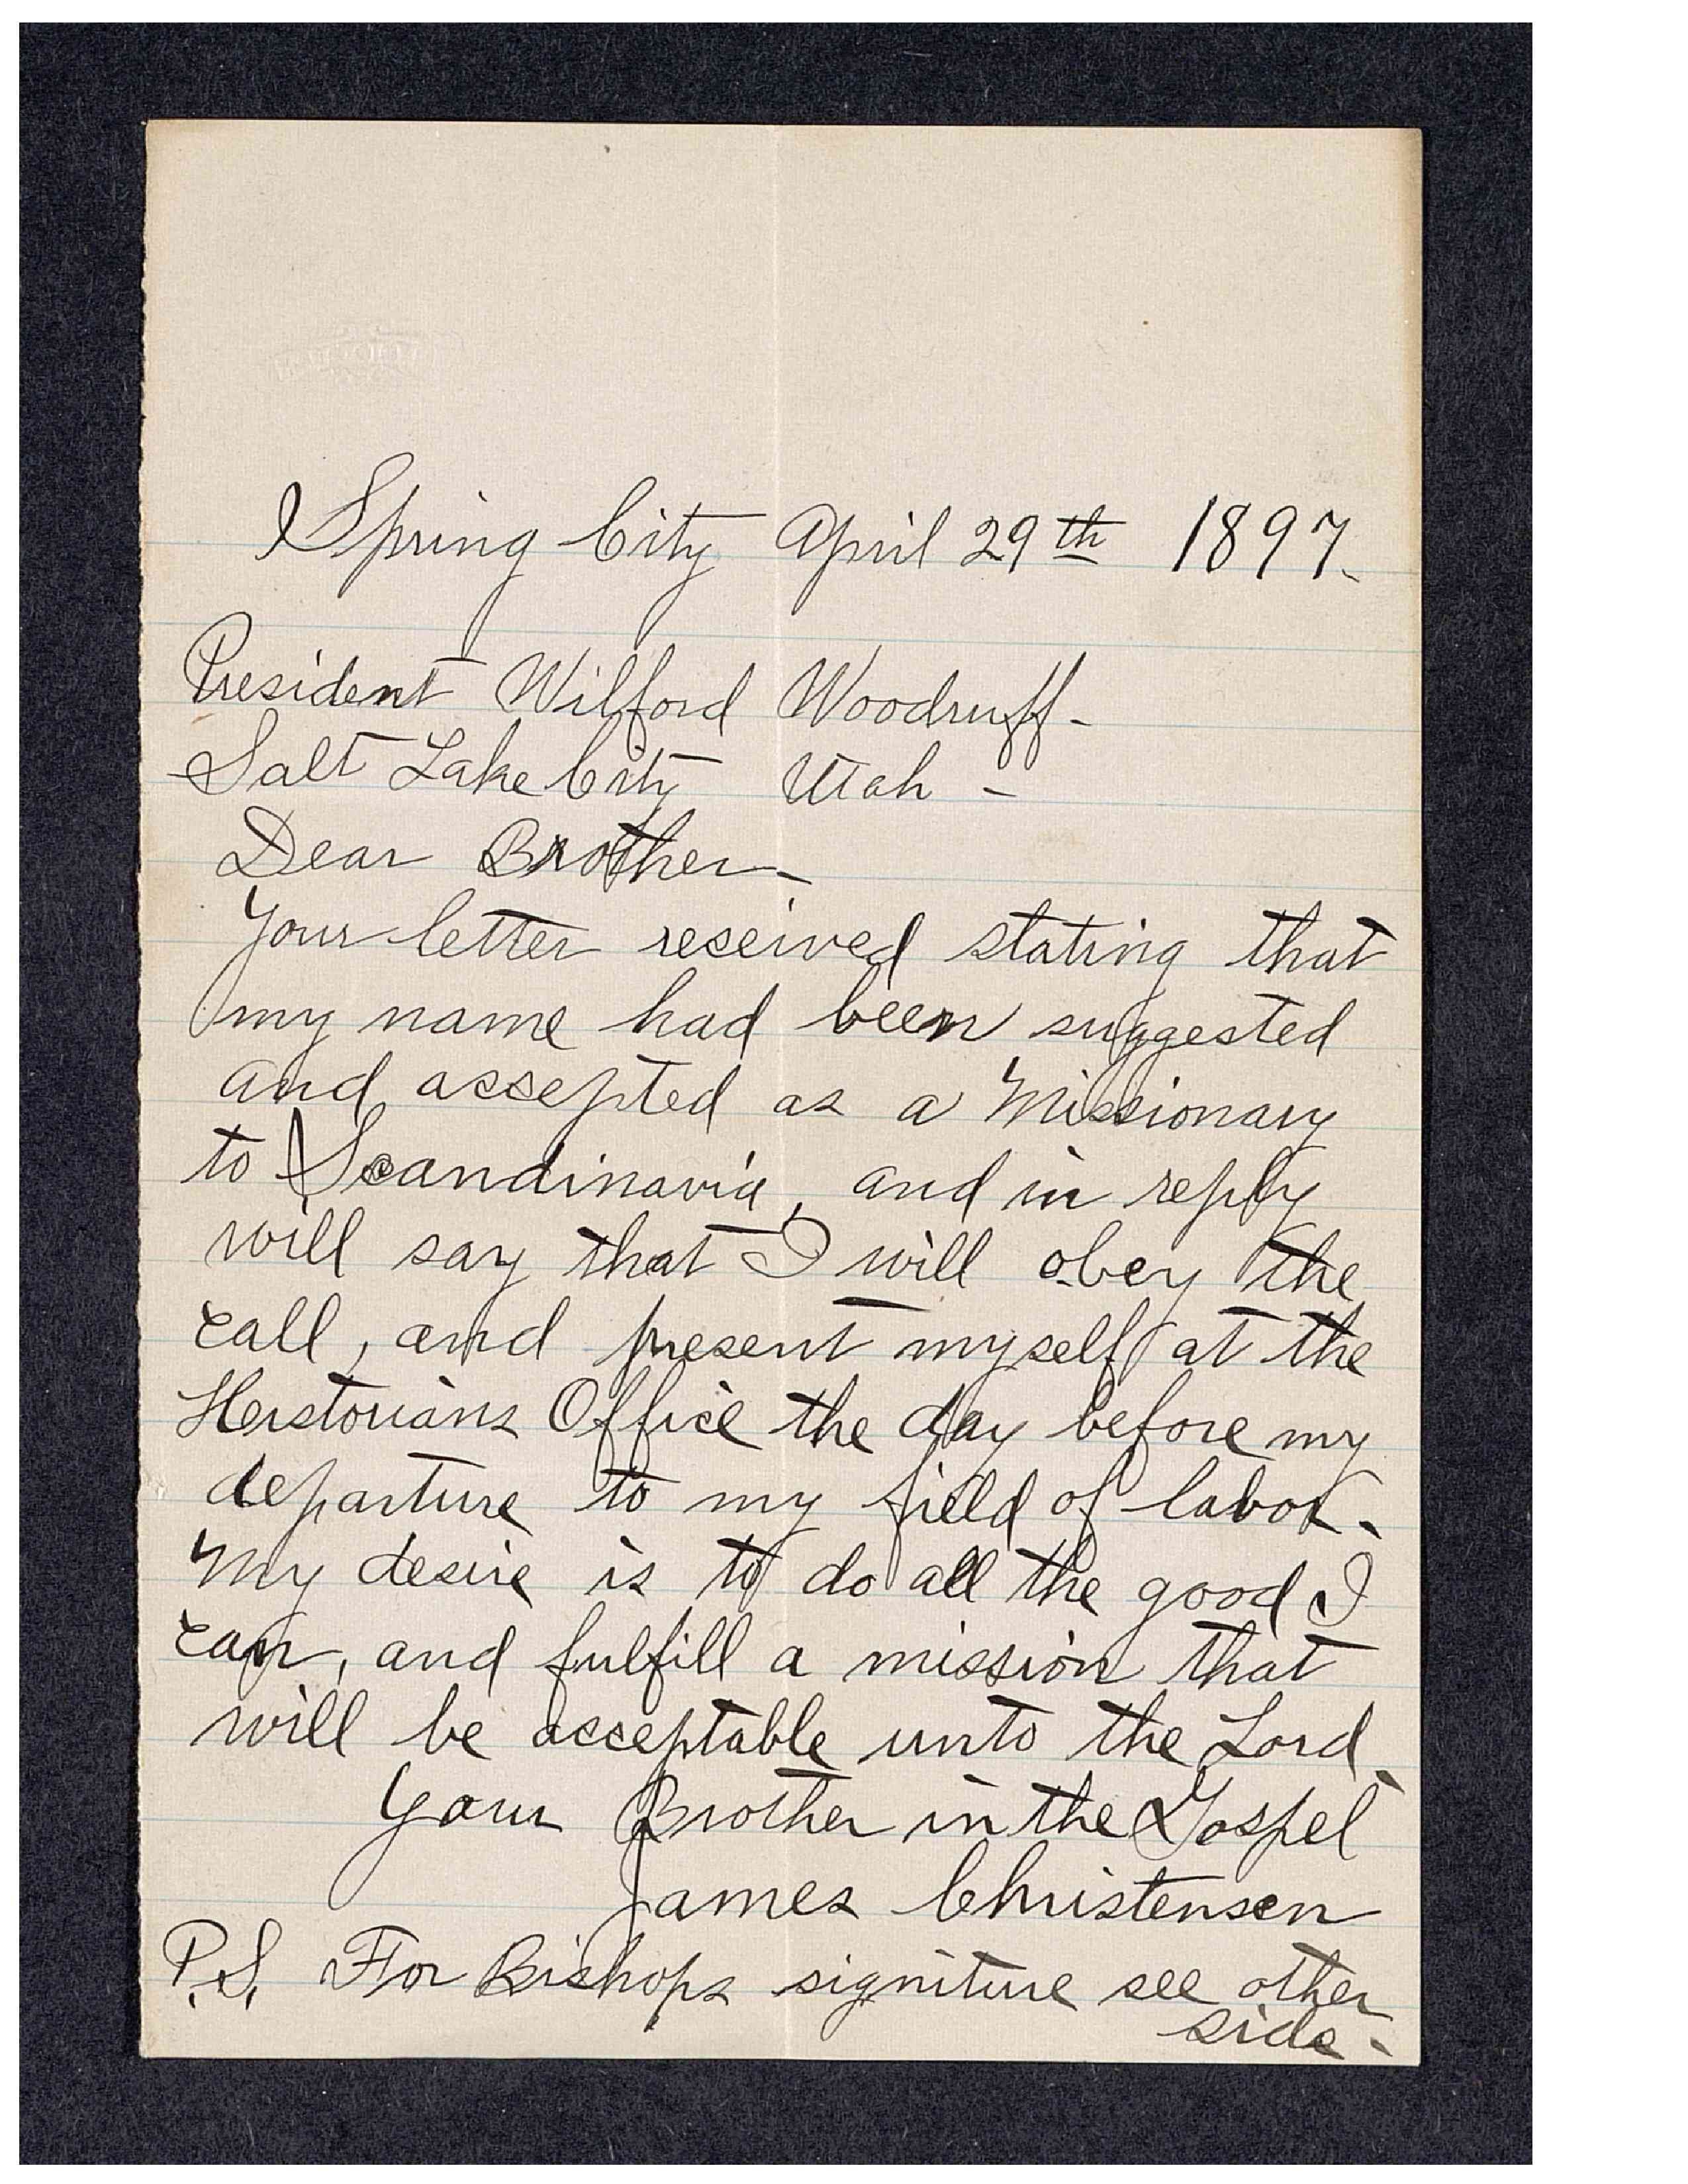 Spring City April 29th 1897.
President Wilford Woodruff-
Salt Lake City Utah -
Dear Brother-
Your letter received stating that
my name had been suggested
and accepted as a Missionary
to Scandinavia, and in reply
will say that I will obey the
call, and present myself at the
Herstorians Office the day before my
departure to my field of labor.
My desire is to do all the good I
can, and fulfill a mission that
will be acceptable unto the Lord.
Your Brother in the Gospel
James Christensen
P.S. For Bishops signiture see other
side-